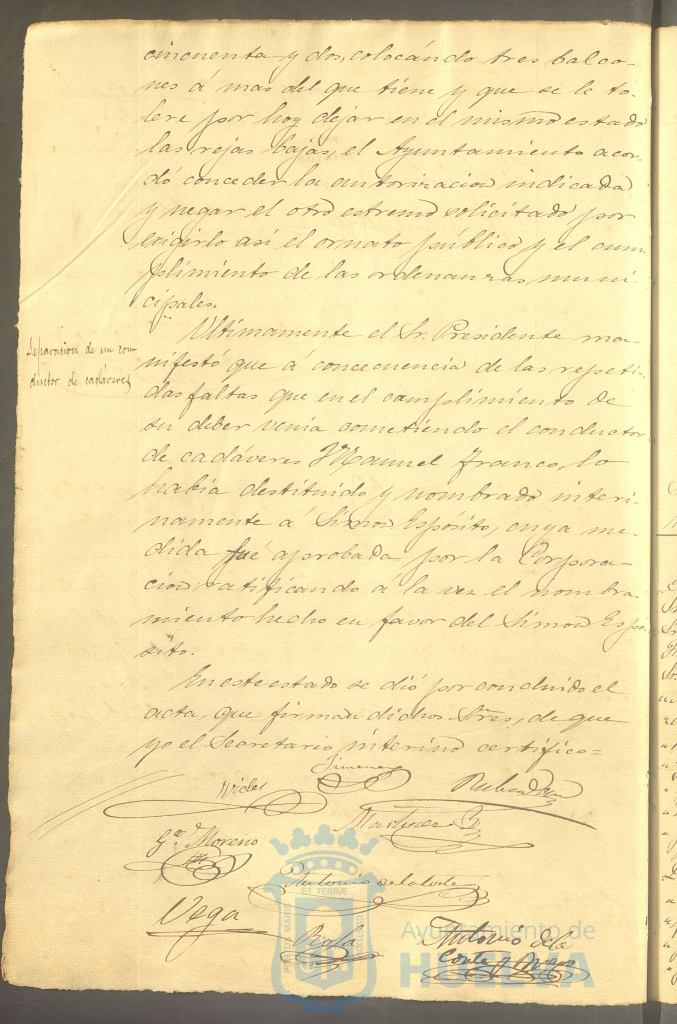 cincuenta y dos, colocándo tres balco-
nes á mas del que tiene y que se le to-
lere por hoy dejar en el mismo estado
las rejas bajas, el Ayuntamiento acor-
dó conceder la autorizacion indicada
y negar el otro estremo solicitado por
exigirlo asi el ornato público y el cum-
plimiento de las ordenanzas muni-
cipales.
Separacion de un con-
ductor de cadáveres
Ultimamente el Sr. Presidente ma-
nifestó que á concecuencia de las repeti-
das faltas que en el cumplimiento de
su deber venia cometiendo el conductor
de cadáveres Manuel Franco, lo
habia destituido y nombrado interi-
namente á Simon Espósito, cuya me-
dida fué aprobada por la Corpora-
cion ratificando a la vez el nombra-
miento hecho en favor del Simon Espó-
sito.
En este estado se dió por concluido el
acta, que firman dichos Sres, de que
yo el Secretario interino certifico=
Jimenez
Martinez
Gª Moreno
Antonio de la Corte
Vega
Rula
Antonio de la
Corte y
Ayuntamiento de
HUELVA
ET TERRÆ